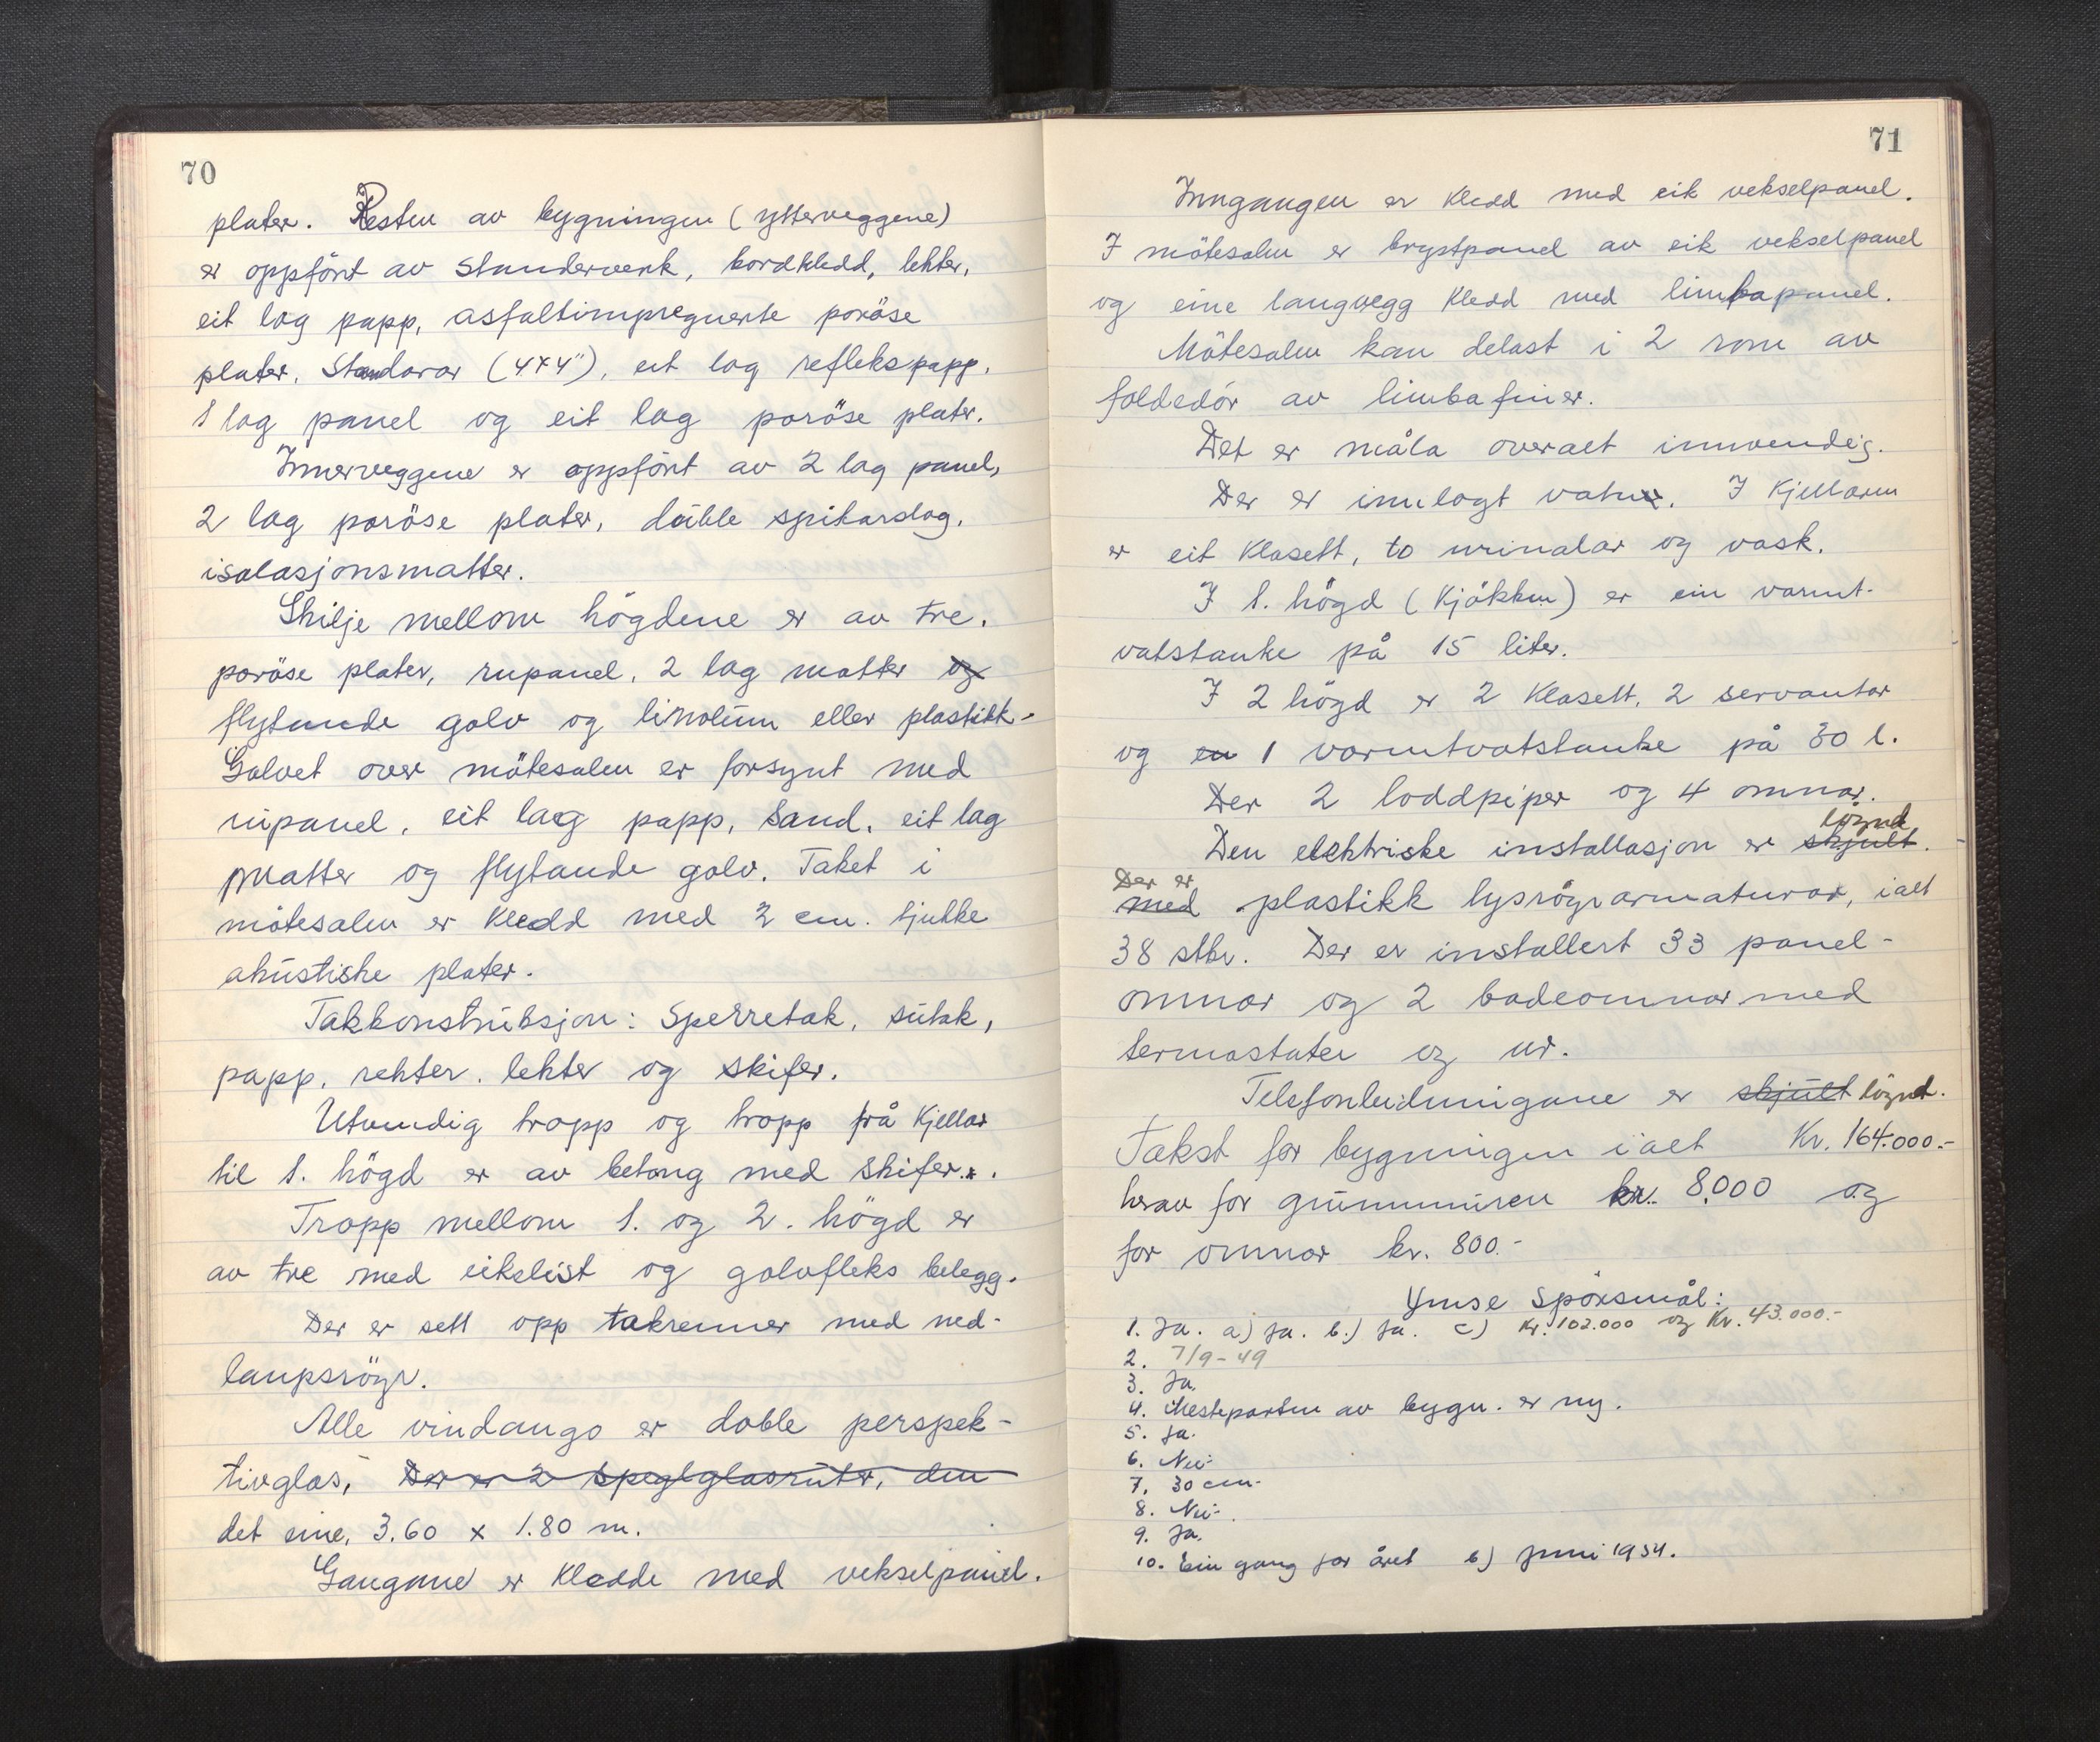 70
plater. Resten av bygningen (ytterveggene)
er oppfört av standerverk, bordkledd, lekter,
eit lag papp, asfaltimpregnerte poröse
plater. Standarar (4x4"), eit lag reflekspapp.
1 lag panel og eit lag poröse plater.
Innerveggene er oppfört av 2 lag panel,
2 lag poröse plater, duble spikarslag,
isolasjonsmatter.
Skilje mellom högdene er av tre,
poröse plater, rupanel, 2 lag matter og
flytande golv og linoleum eller plastikk-
Golvet over mötesalen er forsynt med
rupanel, eit lag papp, sand, eit lag
matter og flytande golv. Taket i
mötesalen er kledd med 2 cm. tjukke
akustiske plater.
Takkonstruksjon: Sperretak, sutak,
papp, rekter, lekter og skifer.
Utvendig tropp og tropp frå kjellar
til 1. högd er av betong med skifer.
Tropp mellom 1. og 2. högd er
av tre med eikelist og golvfleks belegg.
Der er sett opp takrenner med ned-
laupsröyr.
Alle vindaugo er doble perspek-
tivglas, Der er 2 speglglasruter, den
det eine, 3.60 x 1.80 m.
Gangane er kledde med vekselpanel.
71
Inngangen er kledd med eik vekselpanel.
I mötesalen er brystpanel av eik vekselpanel
og eine langvegg kledd med limbapanel.
Mötesalen kan delast i 2 rom av
foldedör av limbafiner.
Det er måla overalt innvendig.
Der er innlagt vatn. I kjellaren
er eit klosett, to urinalar og vask.
I 1. högd (kjökken) er ein varmt-
vatstanke på 15 liter.
I 2 högd er 2 klosett, 2 servantar
og en 1 varmtvatstanke på 30 l.
Der 2 loddpiper og 4 omnar.
löynd
Den elektriske installasjon er skjult.
Der er
med plastikk lysröyrarmaturar, ialt
38 stkr. Der er installert 33 panel-
omnar og 2 badeomnar med
termostater og ur.
Telefonleidningane er skjult löynd.
Takst for bygningen ialt Kr. 164.000.-
herav for grunnmuren kr. 8.000 og
for omnar kr. 800.-
Ymse Spörsmål:
1. Ja. a) Ja. b.) Ja. c) Kr. 102.000 og Kr. 43.000.-
2. 7/9-49
3. Ja.
4. Mesteparten av bygn. er ny.
5. Ja.
6. Nei.
7. 30 cm.
8. Nei.
9. Ja.
10. Ein gang for året b) Juni 1954.